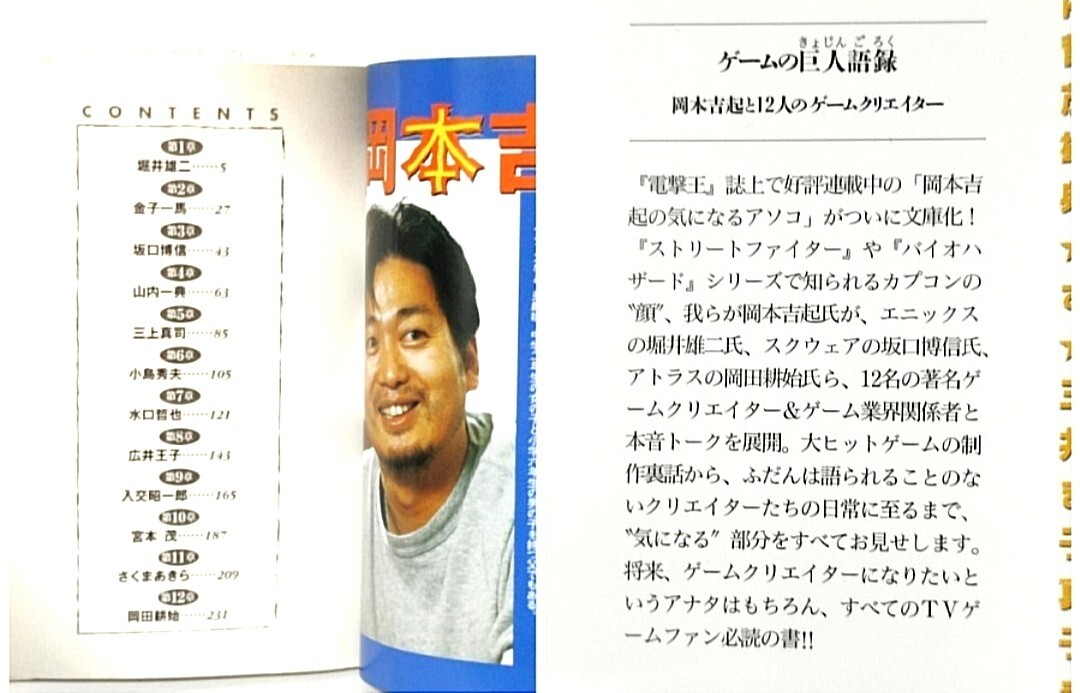 CONTENTS
第1章
堀井雄二……5
第2章
金子一馬……27
第3章
坂口博信……43
第4章
山内一典……63
第5章
三上真司……85
第6章
小島秀夫……105
第7章
水口哲也……121
第8章
広井王子……143
第9章
入交昭一郎……165
第10章
宮本 茂……187
第11章
さくまあきら……209
第12章
岡田耕始……231
岡本吉
きょじんごろく
ゲームの巨人語録
岡本吉起と12人のゲームクリエイター
『電撃王』誌上で好評連載中の「岡本吉
起の気になるアソコ」がついに文庫化!
『ストリートファイター』や『バイオハ
ザード』シリーズで知られるカプコンの
〝顔〟、我らが岡本吉起氏が、エニックス
の堀井雄二氏、スクウェアの坂口博信氏、
アトラスの岡田耕始氏ら、12名の著名ゲ
ームクリエイター&ゲーム業界関係者と
本音トークを展開。大ヒットゲームの制
作裏話から、ふだんは語られることのな
いクリエイターたちの日常に至るまで、
〝気になる〟部分をすべてお見せします。
将来、ゲームクリエイターになりたいと
いうアナタはもちろん、すべてのTVゲ
ームファン必読の書!!